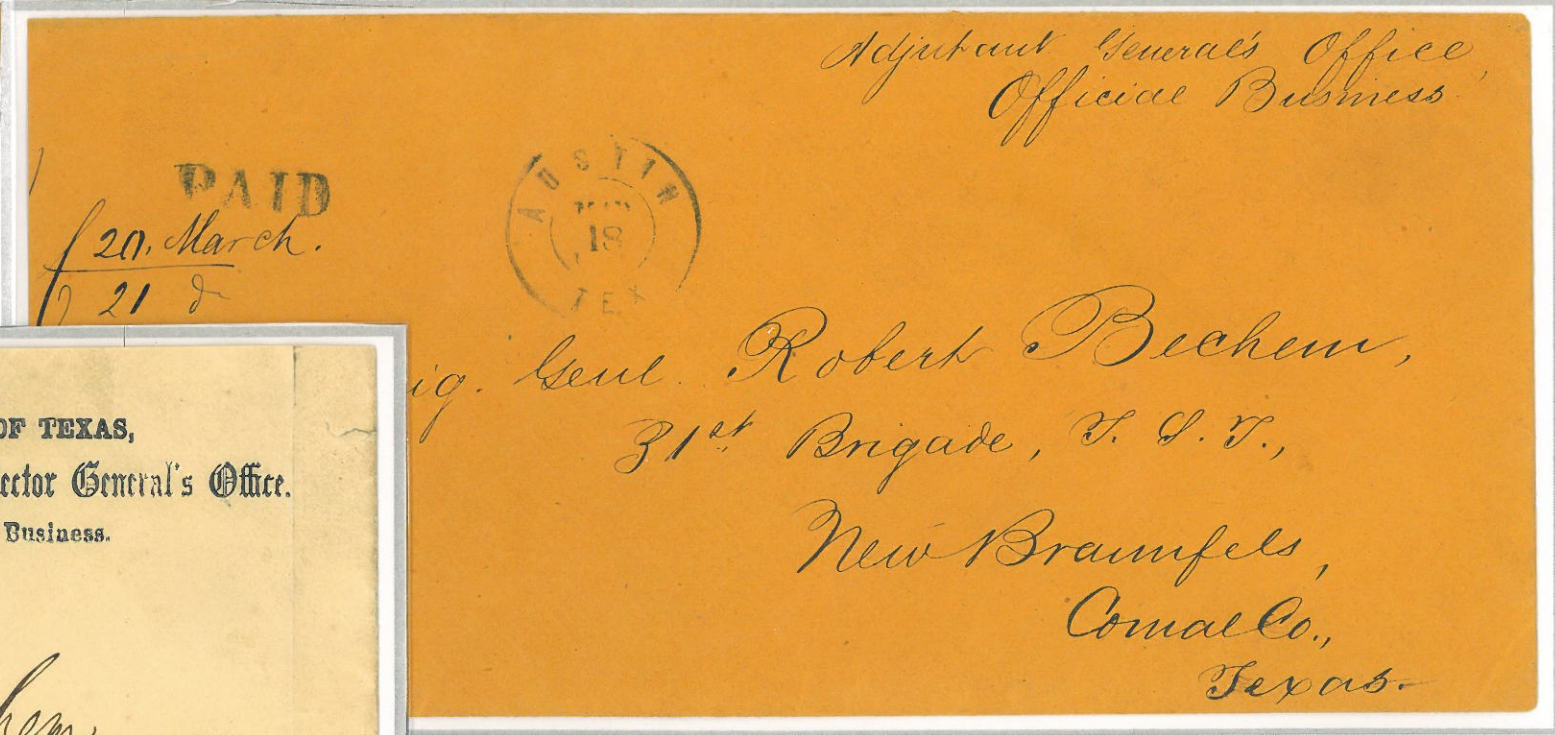 Adjutant General's Office,
Official Business
PAID
AUSTIN
MAR
18
TEX
20. March.
21 d
ig. Genl. Robert Bechem,
31st Brigade, T. S. T.,
New Braunfels,
Comal Co.,
Texas.
OF TEXAS,
ector General's Office.
Business.
hem